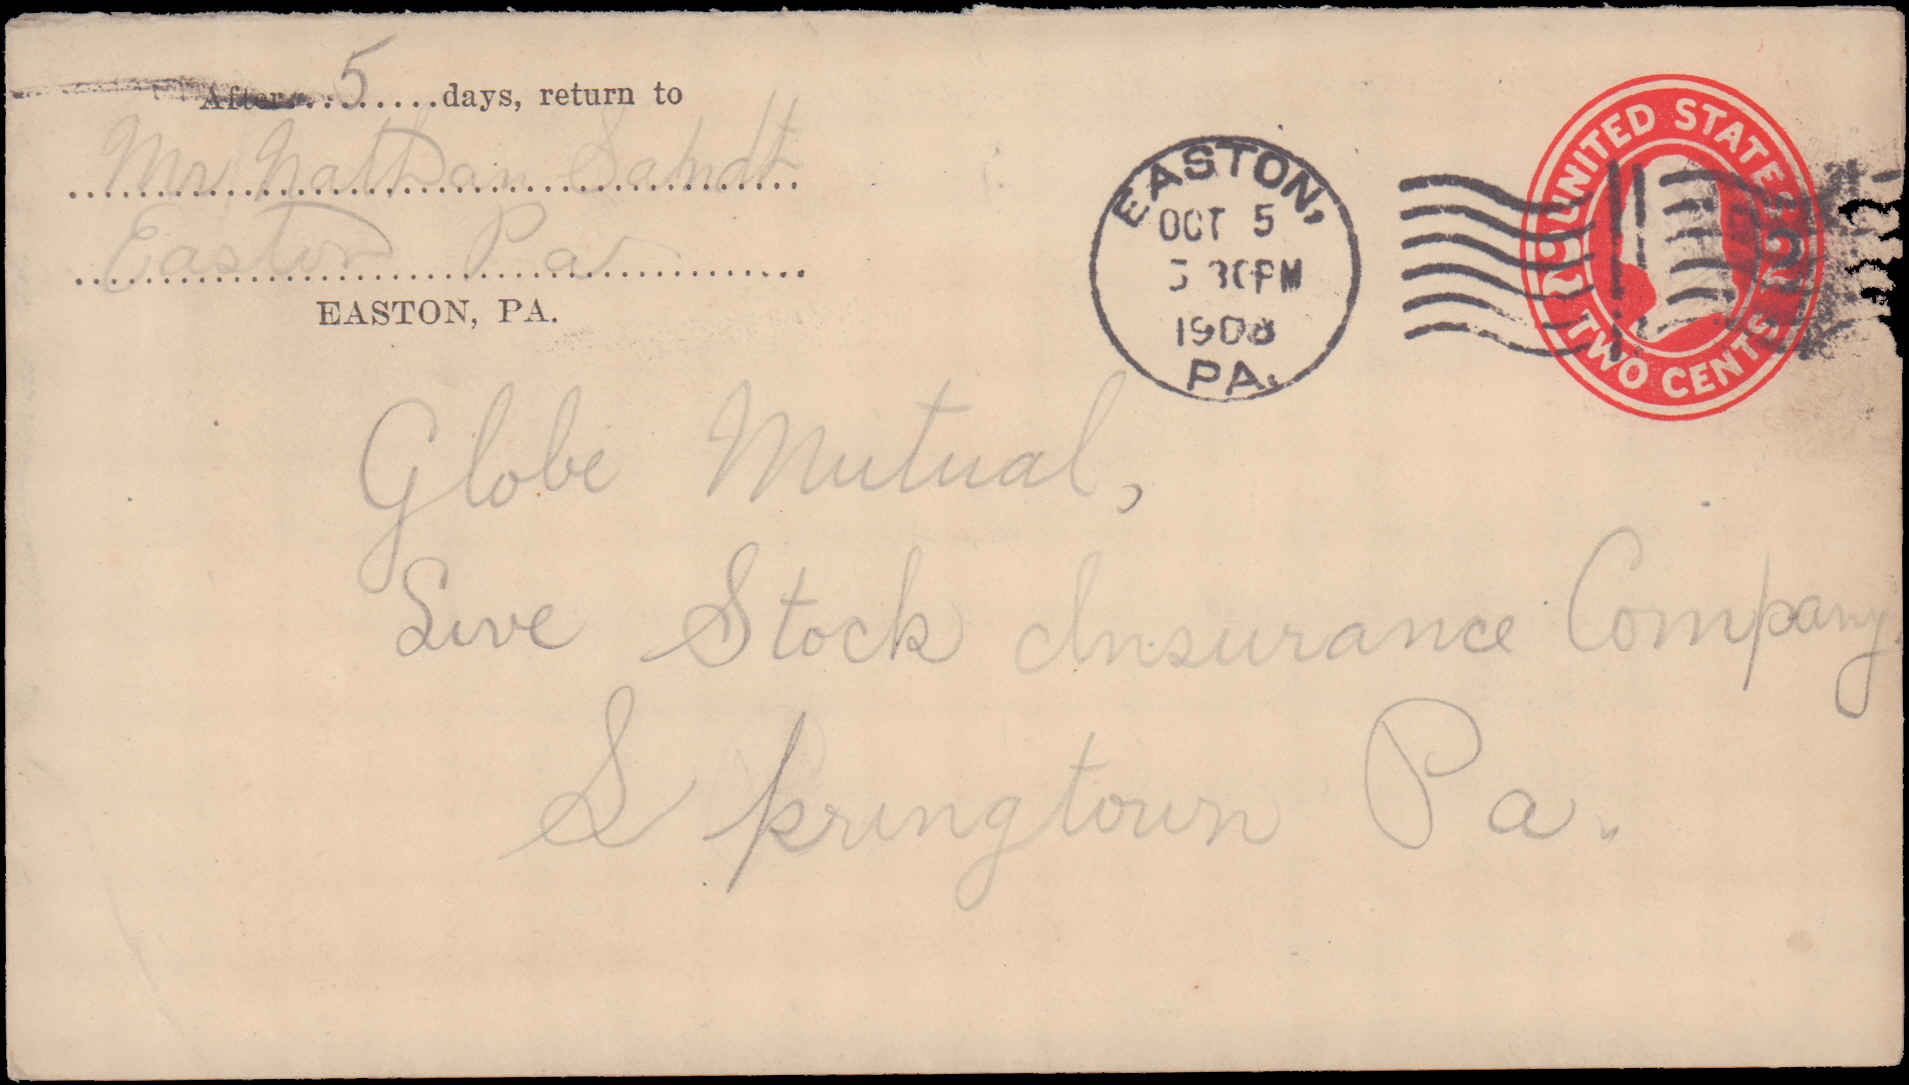 After ........ 5 days, return to
Mr Nathan Sandt
Easton Pa
EASTON, PA.
EASTON,
OCT 5
5 30 PM
1908
PA.
UNITED STATES
2 2
TWO CENTS
Globe Mutual,
Live Stock Insurance Company.
Springtown Pa.